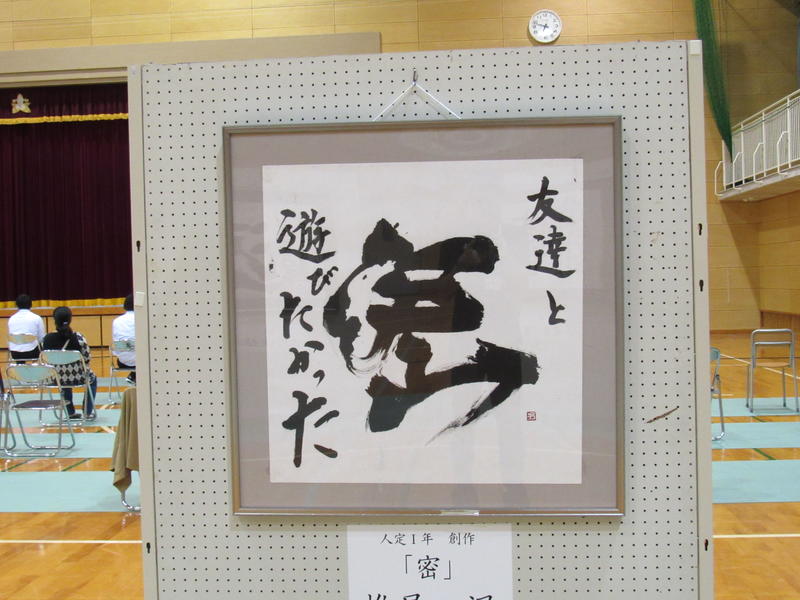 友達と
密
遊びたかった
人定1年 創作
「密」